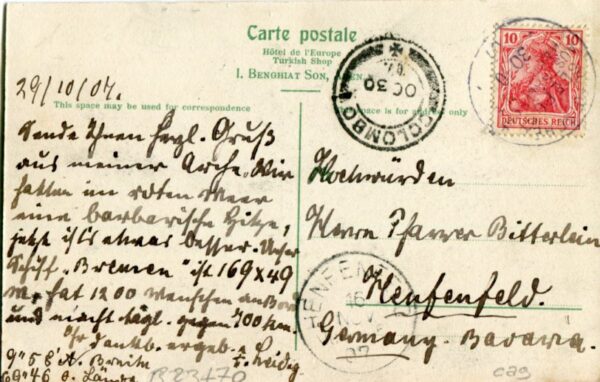 Carte postale
Hôtel de l'Europe
Turkish Shop
I. Benghiat Son,
29/10/07.
This space may be used for correspondence
space is for address only
Sende Ihnen herzl. Gruß
aus meiner Arche. Wir
hatten im roten Meer
eine barbarische Hitze,
jetzt ist's etwas besser. Unser
Schiff "Bremen" ist 169 x 49
m. hat 1200 Menschen an Bor
und macht tägl. gegen 700 km.
Ihr dankb. ergeb.
9° 5 L' N. Breite
69° 46 ö. Länge
R23470
Hochwürden
Herrn Pfarrer Bitterlein
Henfenfeld.
Germany. Bavaria.
cag
COLOMBO
OC 30
07
10 10
DEUTSCHES REICH
30
HENFENFELD
16
NOV
07